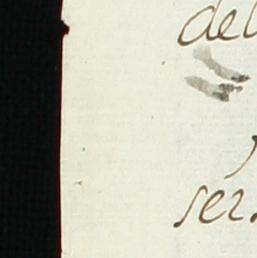 del
ser.